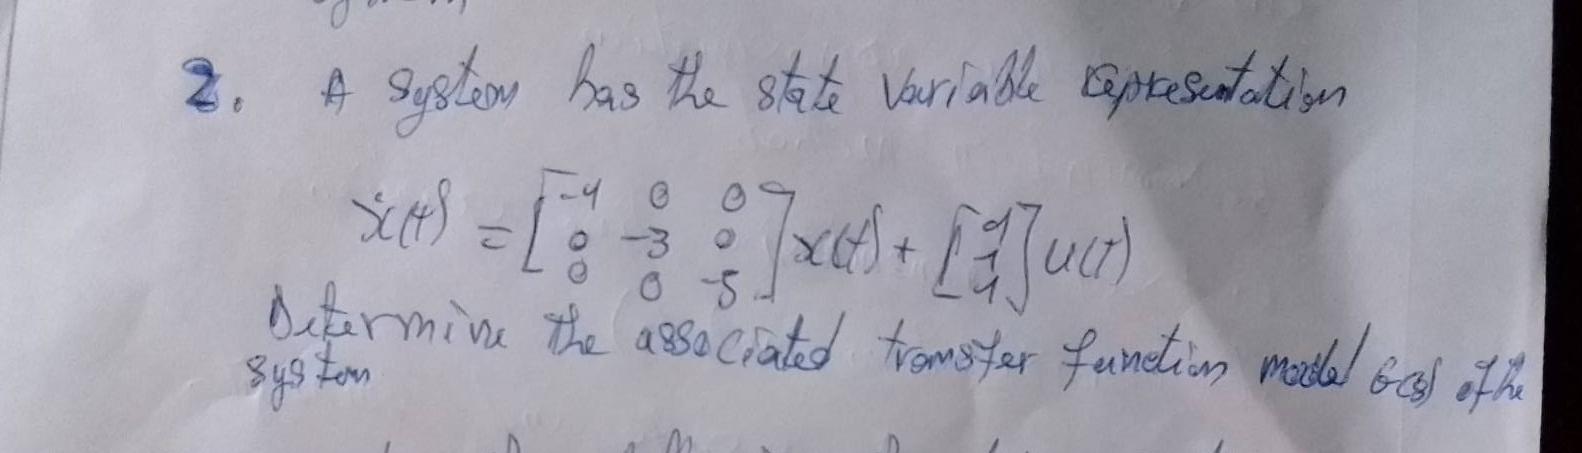 2. A system has the state variable representation
ẋ(t) = [-4 0 0
0 -3 0
0 0 -5] x(t) + [1
1
1] u(t)
Determine the associated transfer function model G(s) of the
system